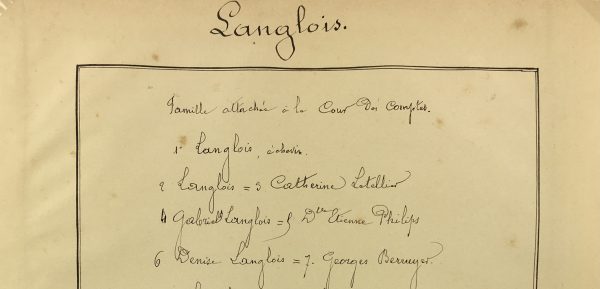 Langlois.
Famille attachée à la Cour des Comptes.
1° Langlois, échevin.
2 Langlois = 3 Catherine Letellier
4 Gabriel Langlois = 5 Dlle Etienne Philips
6 Denise Langlois = 7. Georges Berruyer.